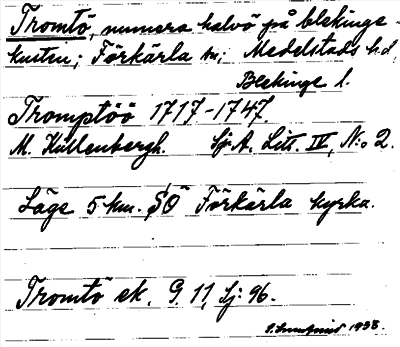 Tromtö, numera halvö på blekinge-
kusten; Förkärla sn; Medelstads hd,
Blekinge l.
Tromptöö 1717-1747.
M. Kullenbergh. Sj. A. Litt. IV, N:o 2.
Läge 5 km. SÖ Förkärla kyrka.
Tromtö ek. 9 11 Sj: 96.
1938.